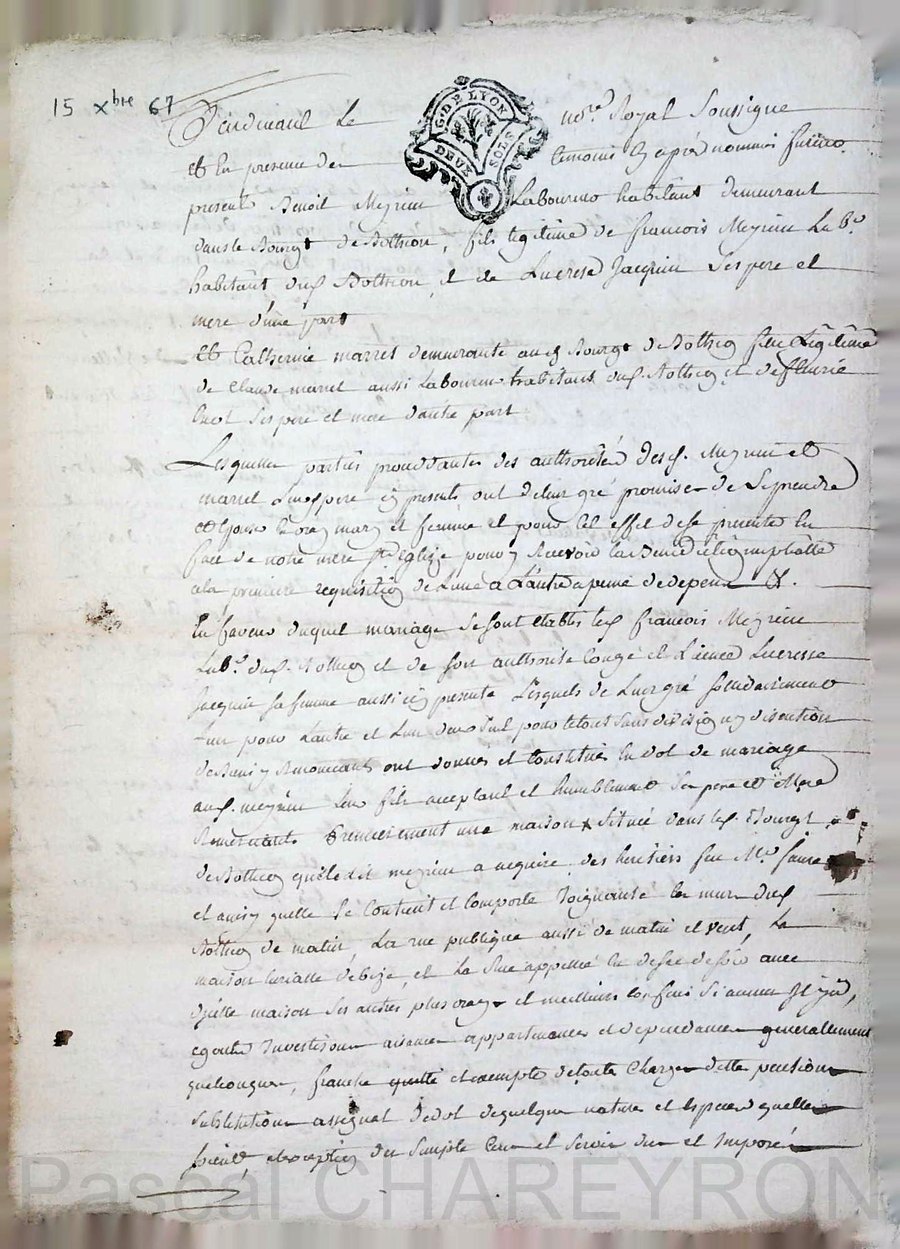 15 xbre 67
G. DE LYON
DEUX SOLS
Pardevant Le no.re Royal Soussigné
et En presence des temoins cy apres nommés furent
presents Benoit Meyrieu Laboureur habitant demeurant
dans le Bourg de Bothéon, fils legitime de françois Meyrieu Lab.r
habitant dud Bothéon, et de Lucresse Jacquin Ses pere et
mere d'une part
Et Catherine marret demeurante aud Bourg de Bothéon fille Légitime
de Claude marret aussi Laboureur habitant dud Bothéon et de fleurie
Ses pere et mere d'autre part
Lesquelles parties procedantes des authorités desd. Meyrieu et
marret Leurs pere cy presents ont de leur gré promises de Se prendre
et mary et femme et pour Cet effet de se presenter En
face de notre mere Ste Eglize pour y Recevoir La Bened.
a la premiere requisition de L'une a L'autre a peine de depens &.
En faveur duquel mariage Se sont etablis led françois Meyrieu
Lab.r dud. Bothéon et de son authorité Congé et Licence Lucresse
Jacquin Sa femme aussi cy presente Lesquels de Leur gré Solidairement
L'un pour L'autre et L'un deux Seul pour le tout Sans division ny discution
Renoncants ont donnés et Constitués En dot de mariage
aud. meyrieu Leur fils acceptant et humblement Ses pere et Mere
Remerciant Premierement une maison Située dans led Bourg
de Bothéon que ledit meyrieu a acquise des heritiers feu Mr. faure
et ainsy quelle Se Contient et Comporte Joignante Les murs dud
Bothéon de matin, La rue publique aussi de matin et vent, La
maison de bize, et La Rue appellée de Soir avec
maison Ses autres plus vrays et meilleurs Confins Si aucun Il y a,
egouts Investisons aisances appartenances et dependances generallement
quelconques, franche quitte et exempte de toute Charges dettes pensions
Substitution assignat de dot de quelque nature et Espece quelles
Soient, exceptés des Simples Cens et Servis dus et Imposés
Pascal CHAREYRON